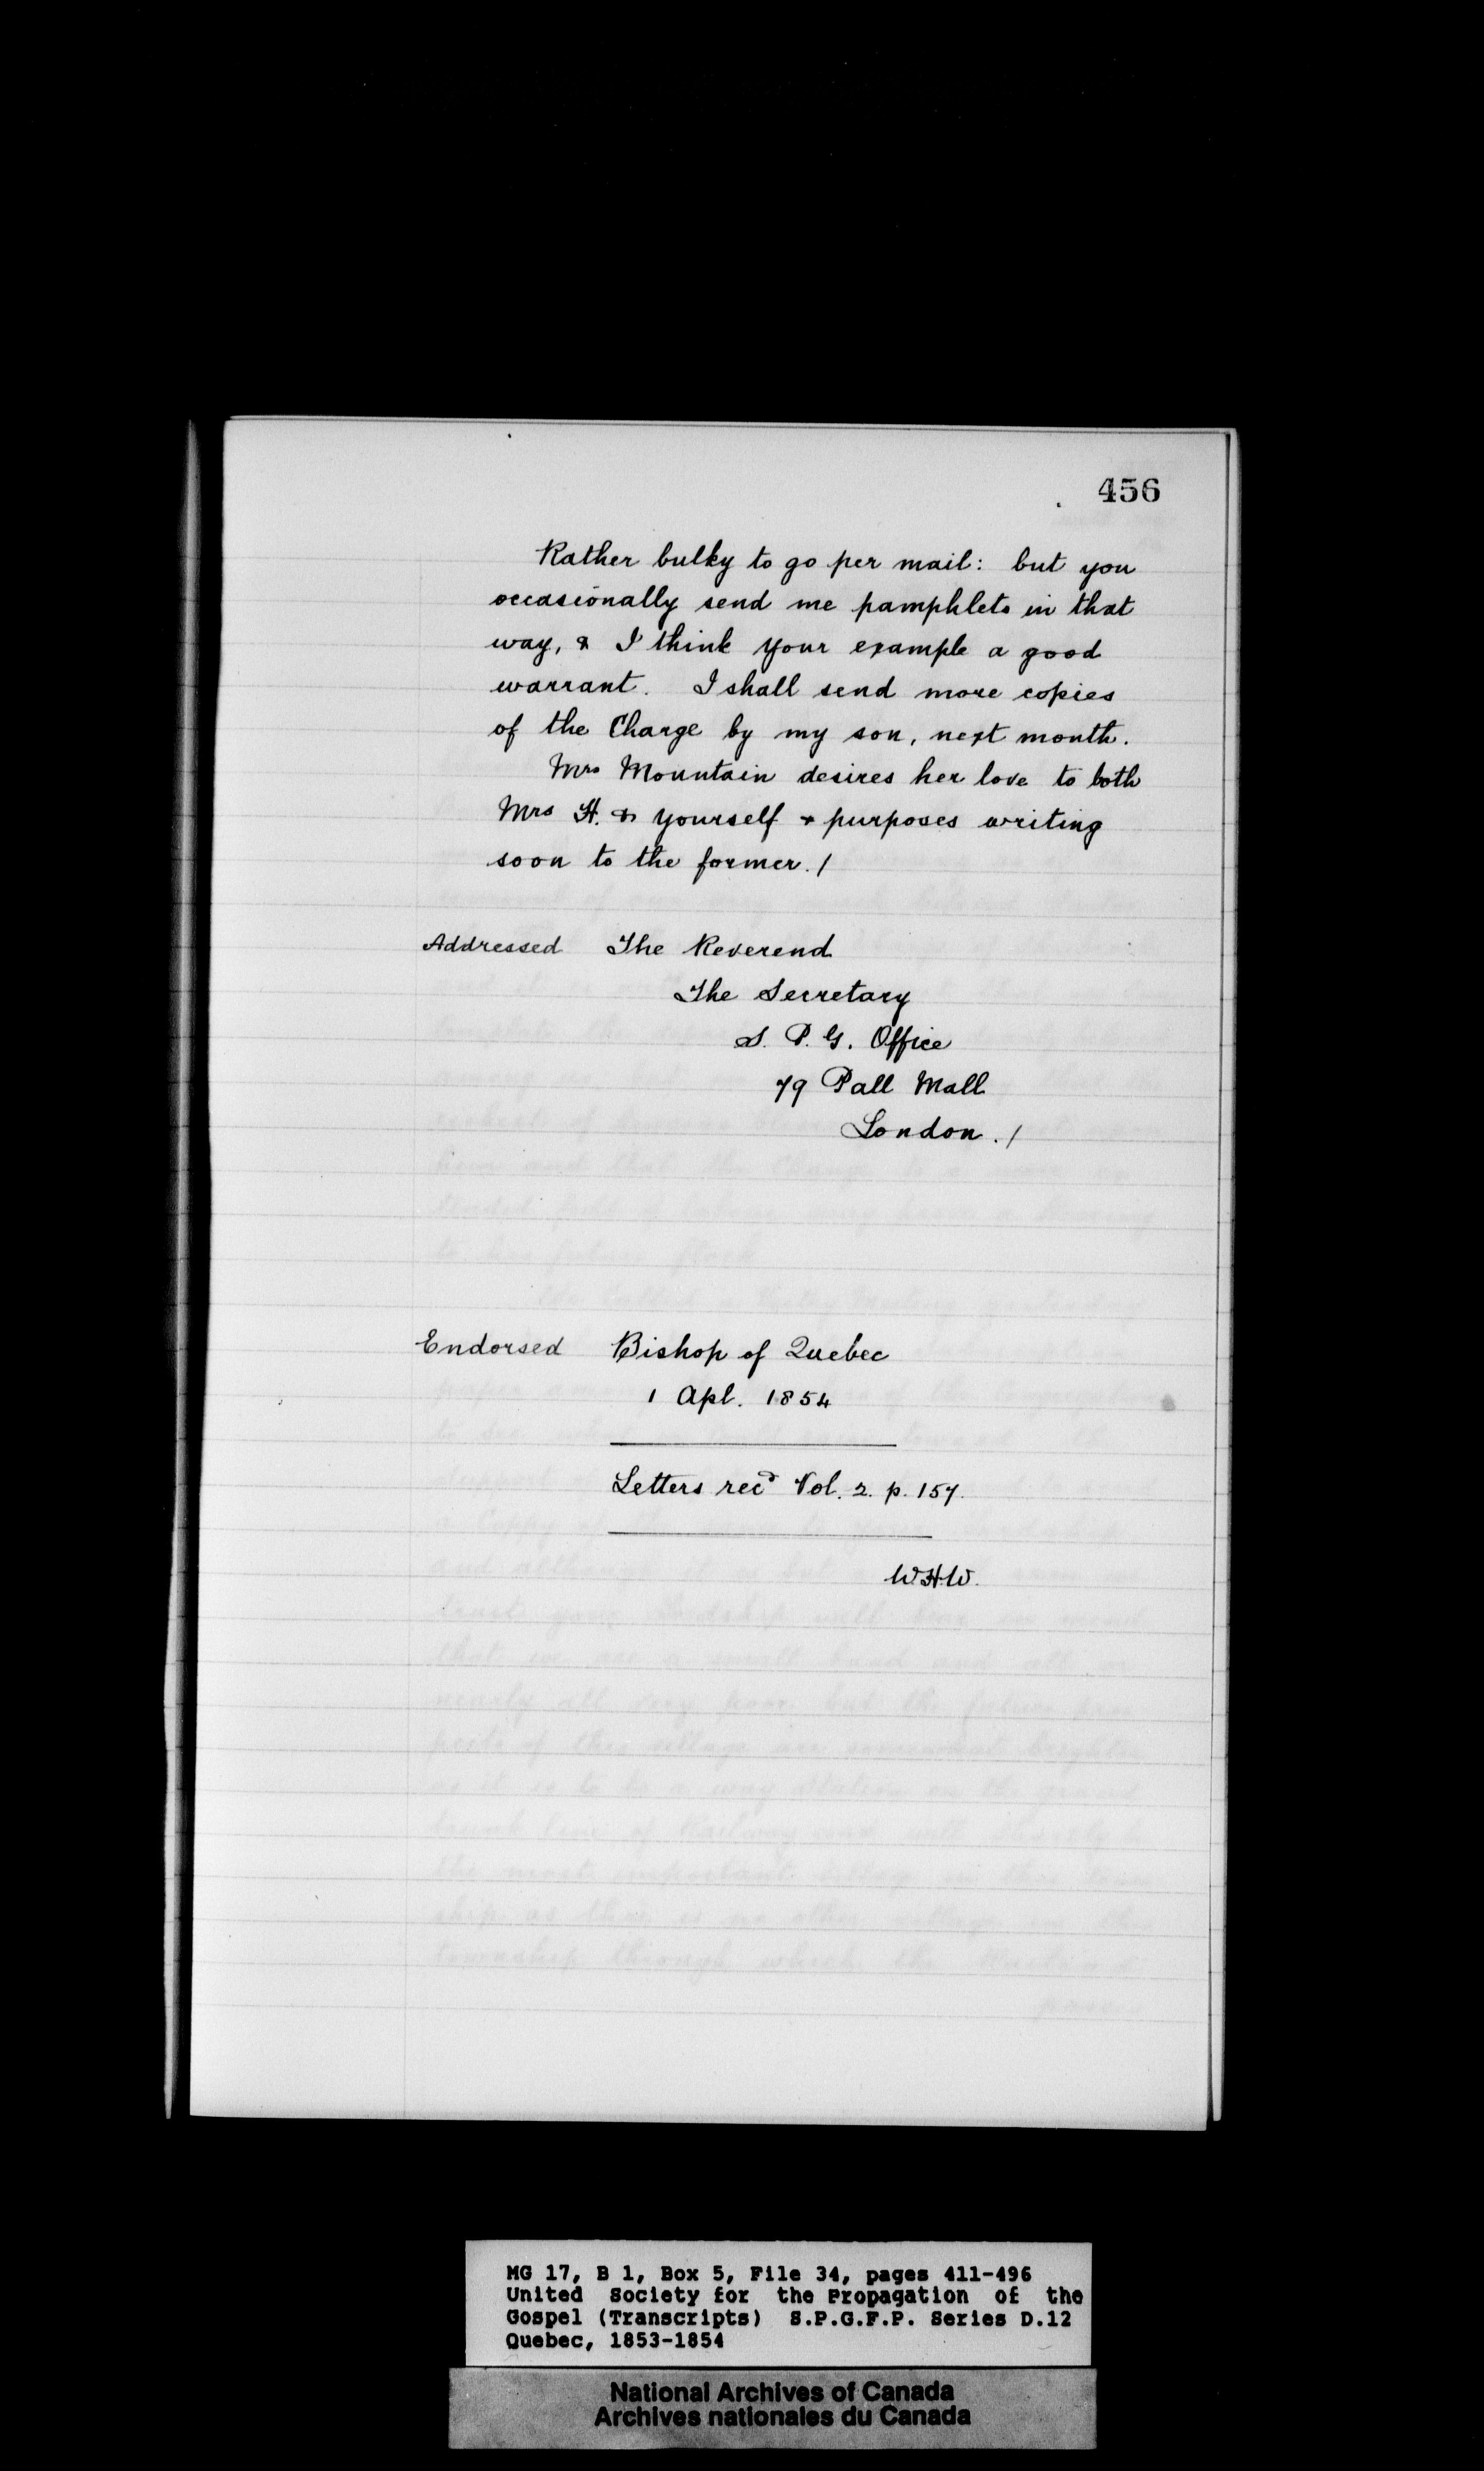 456
Rather bulky to go per mail: but you
occasionally send me pamphlets in that
way, & I think your example a good
warrant. I shall send more copies
of the Charge by my son, next month.
Mrs Mountain desires her love to both
Mrs H. & yourself & purposes writing
soon to the former. /
Addressed The Reverend
The Secretary
S. P. G. Office
79 Pall Mall
London. /
Endorsed Bishop of Quebec
1 Apl. 1854
Letters recd Vol. 2. p. 157.
W.H.W.
MG 17, B 1, Box 5, File 34, pages 411-496
United Society for the Propagation of the
Gospel (Transcripts) S.P.G.F.P. Series D.12
Quebec, 1853-1854
National Archives of Canada
Archives nationales du Canada